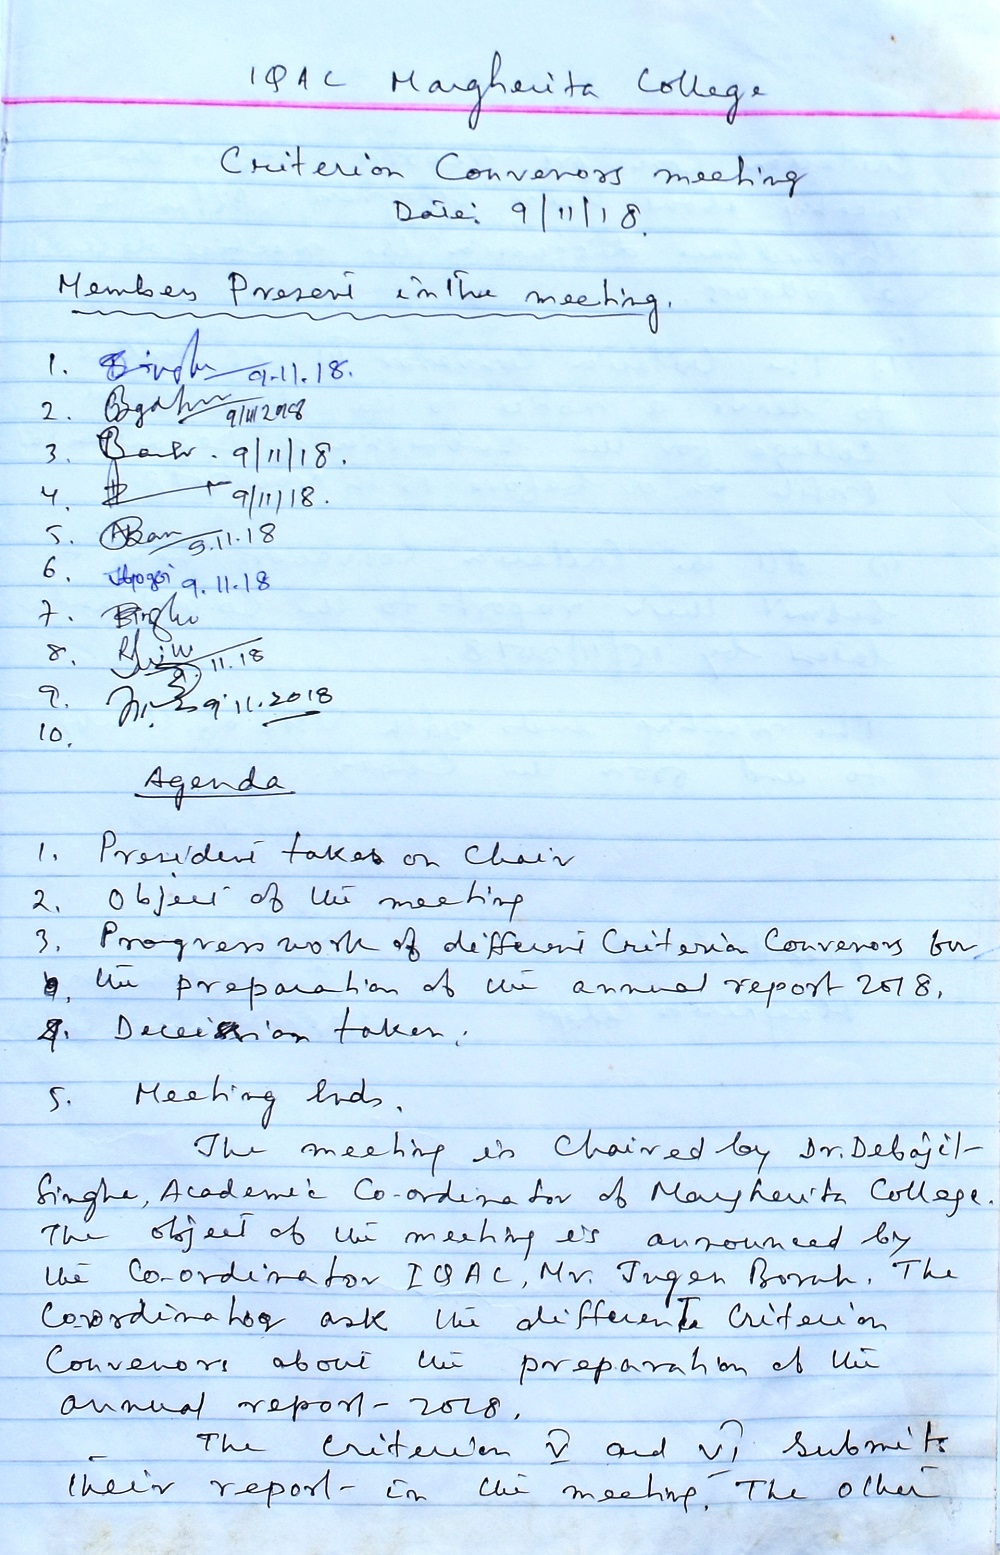 IQAC Margherita College
Criterion Convenors meeting
Date: 9/11/18.
Members Present in the meeting.
1. Singha 9.11.18.
2. 9/11/2018
3. Borah. 9/11/18.
4. 9/11/18.
5. 9.11.18
6. 9.11.18
7. Singha
8. 9.11.18
9. 9.11.2018
10.
Agenda
1. President takes on Chair
2. Object of the meeting
3. Progress work of different Criteria Convenors for
the preparation of the annual report 2018.
4. Deceission taken.
5. Meeting Ends.
The meeting is Chaired by Dr. Debajit
Singha, Academic Co-ordinator of Margherita College.
The object of the meeting is announced by
the Co-ordinator IQAC, Mr. Jugen Borah. The
Coordinator ask the different Criterion
Convenors about the preparation of the
annual report - 2018.
The Criterion V and VI submits
their report in the meeting. The other